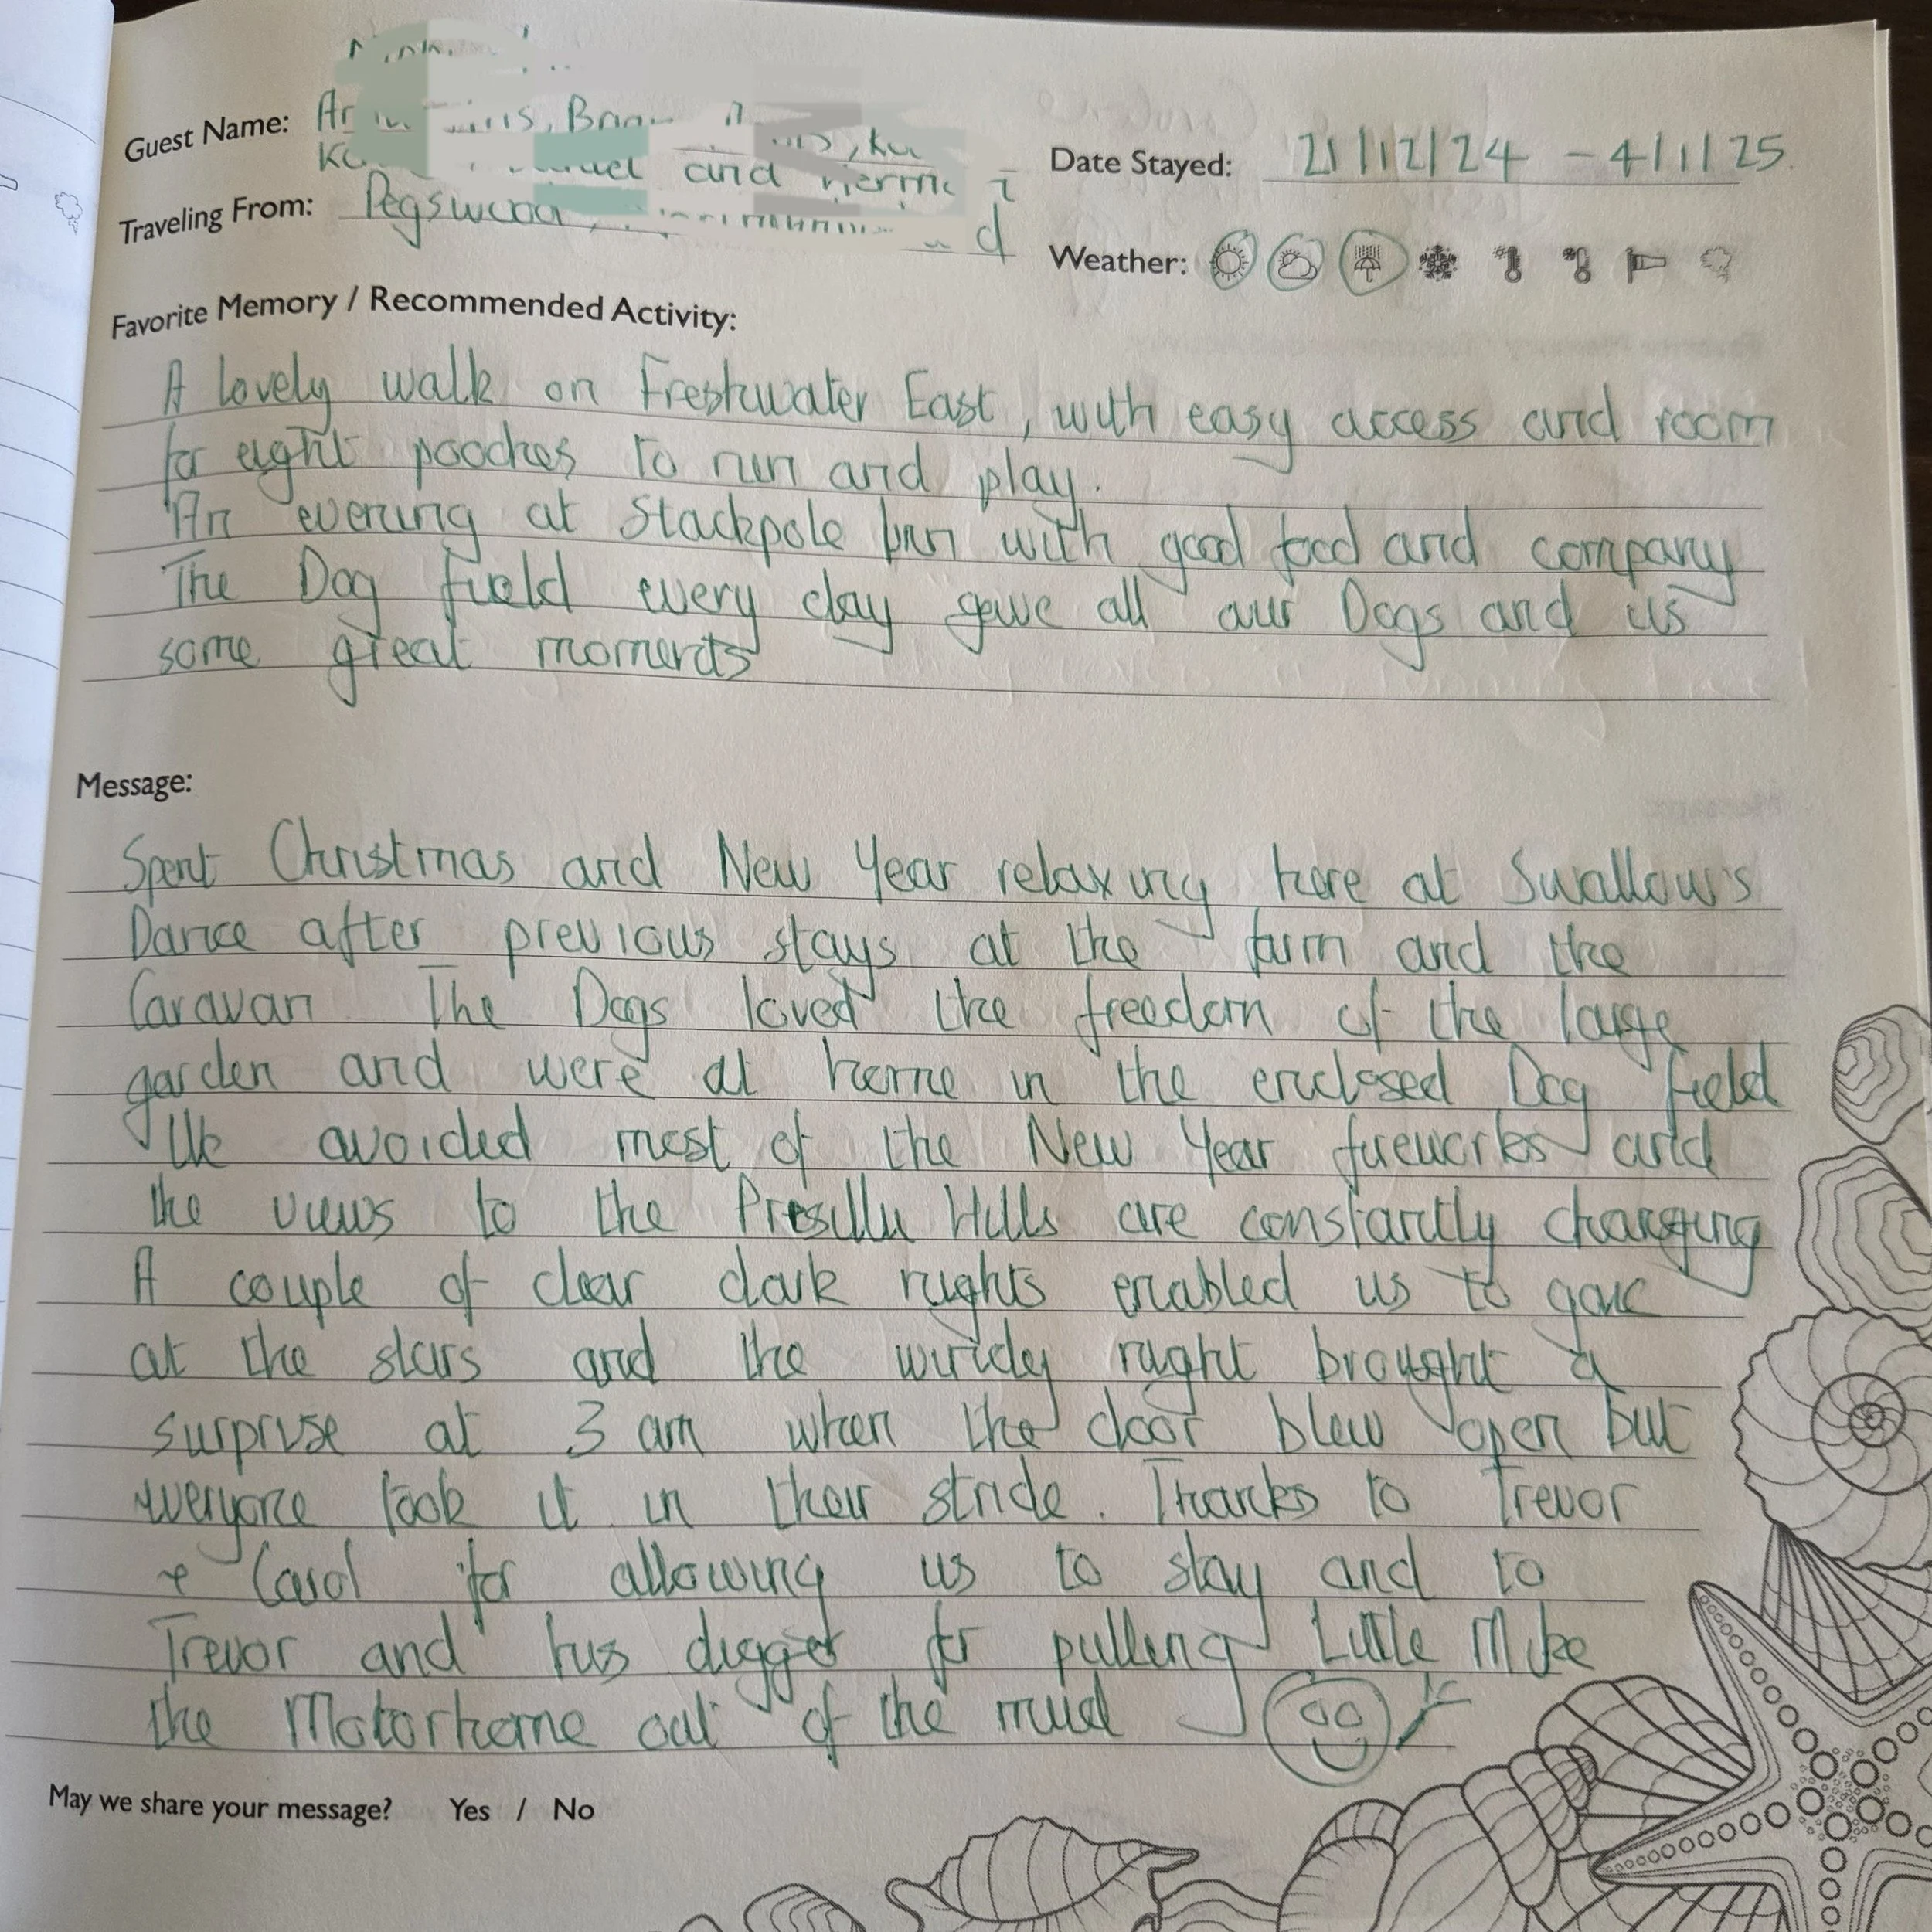 Guest Name:
and
Date Stayed: 21/12/24 - 4/1/25.
Traveling From: Pegswood,
Weather:
Favorite Memory / Recommended Activity:
A lovely walk on Freshwater East, with easy access and room
for eight pooches to run and play.
An evening at Stackpole Inn with good food and company
The Dog field every day gave all our Dogs and us
some great moments
Message:
Spent Christmas and New Year relaxing here at Swallow's
Dance after previous stays at the farm and the
Caravan The Dogs loved the freedom of the large
garden and were at home in the enclosed Dog field
We avoided most of the New Year fireworks and
the views to the Preselli Hills are constantly changing
A couple of clear dark nights enabled us to gaze
at the stars and the windy night brought a
surprise at 3 am when the door blew open but
everyone took it in their stride. Thanks to Trevor
+ Carol for allowing us to stay and to
Trevor and his digger for pulling Little Mike
the Motorhome out of the mud
May we share your message? Yes / No